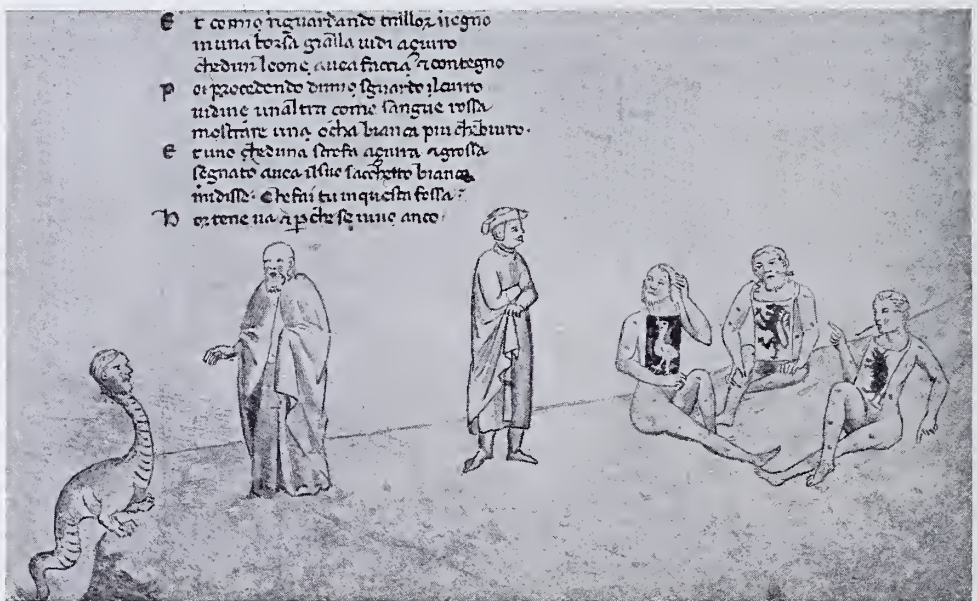 E t comio riguardando trallor uegno
in una borsa gialla uidi açurro
che dun leone auea faccia 7 contegno
P oi procedendo dimio sguardo ilcurro
uidine unaltra come sangue rossa
mostrare una ocha bianca piu cheburro.
E t uno cheduna scrofa açurra 7 grossa
segnato auea ilsuo sacchetto bianco
midisse. Chefai tu inquesta fossa.
H or tene ua 7 pche se uiuo anco.